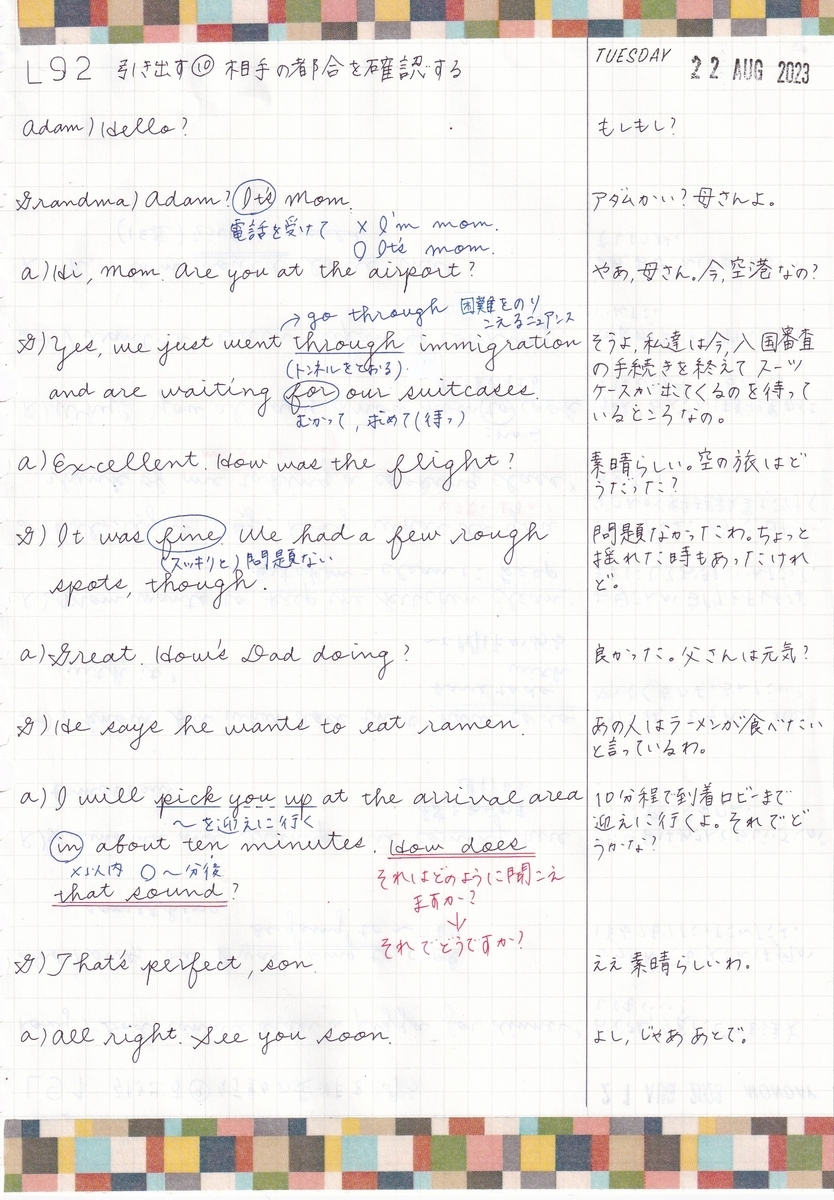 L92 引き出す⑩ 相手の都合を確認する
TUESDAY 22 AUG 2023
Adam) Hello?
もしもし?
Grandma) Adam? It's Mom.
アダムかい?母さんよ。
電話を受けて × I'm mom.
○ It's mom.
a) Hi, Mom. Are you at the airport?
やあ,母さん。今,空港なの?
→ go through 困難をのり
こえるニュアンス
G) Yes, we just went through immigration
(トンネルをとおる)
and are waiting for our suitcases.
むかって,求めて(待つ)
そうよ,私達は今,入国審査
の手続きを終えてスーツ
ケースが出てくるのを待って
いるところなの。
a) Excellent. How was the flight?
素晴らしい。空の旅はど
うだった?
G) It was fine. We had a few rough
(スッキリと)問題ない
spots, though.
問題なかったわ。ちょっと
揺れた時もあったけれ
ど。
a) Great. How's Dad doing?
良かった。父さんは元気?
G) He says he wants to eat ramen.
あの人はラーメンが食べたい
と言っているわ。
a) I will pick you up at the arrival area
~を迎えに行く
in about ten minutes. How does
×以内 ○~分後
that sound?
それはどのように聞こえ
ますか?
↓
それでどうですか?
10分程で到着ロビーまで
迎えに行くよ。それでど
うかな?
G) That's perfect, son.
ええ素晴らしいわ。
a) All right. See you soon.
よし,じゃああとで。